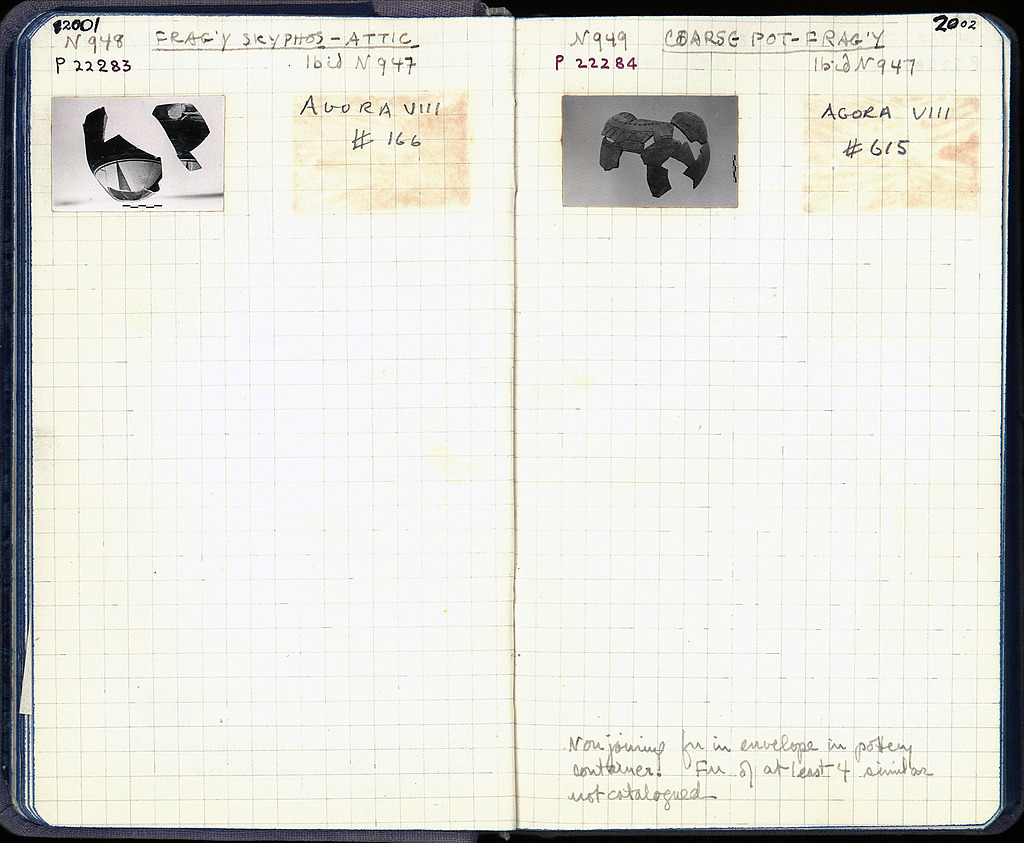 2001
N 948 FRAG'Y SKYPHOS - ATTIC
P 22283 Ibid N 947
AGORA VIII
# 166
2002
N 949 COARSE POT-FRAG'Y
P 22284 Ibid N 947
AGORA VIII
# 615
Non joining fr in envelope in pottery
container. Frr. of at least 4 similar
not catalogued